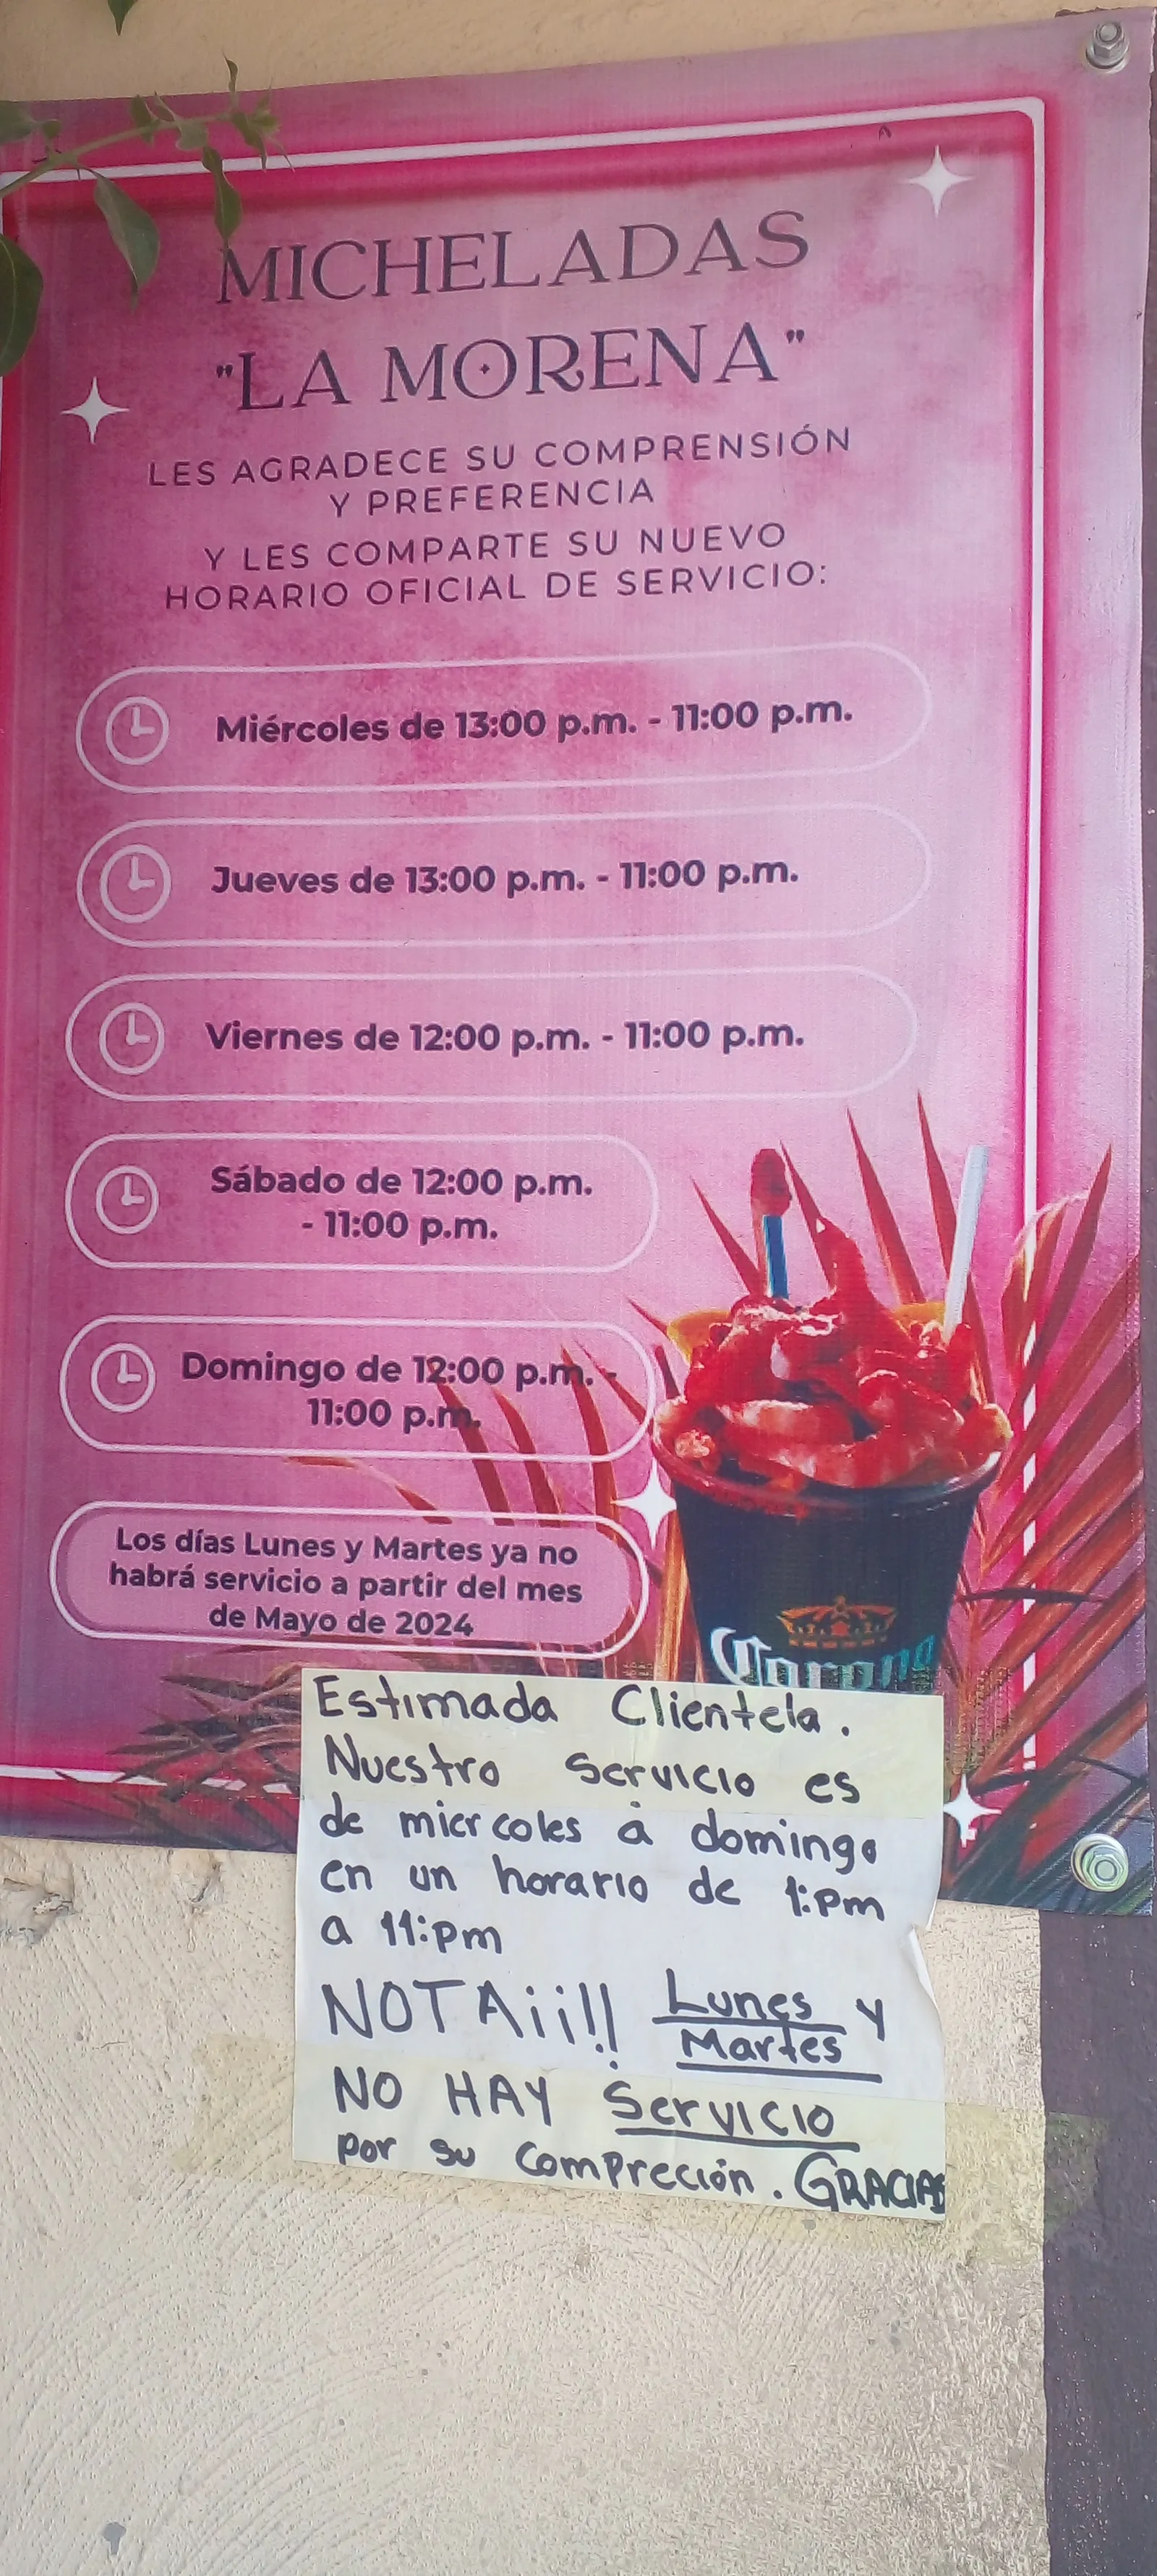 MICHELADAS
"LA MORENA"
LES AGRADECE SU COMPRENSIÓN
Y PREFERENCIA
Y LES COMPARTE SU NUEVO
HORARIO OFICIAL DE SERVICIO:
Miércoles de 13:00 p.m. - 11:00 p.m.
Jueves de 13:00 p.m. - 11:00 p.m.
Viernes de 12:00 p.m. - 11:00 p.m.
Sábado de 12:00 p.m.
- 11:00 p.m.
Domingo de 12:00 p.m. -
11:00 p.m.
Los días Lunes y Martes ya no
habrá servicio a partir del mes
de Mayo de 2024
Corona
Estimada Clientela.
Nuestro Servicio es
de miercoles a domingo
en un horario de 1:pm
a 11:pm
NOTA¡¡!! Lunes y
Martes
NO HAY Servicio
por su Compreción. GRACIAS